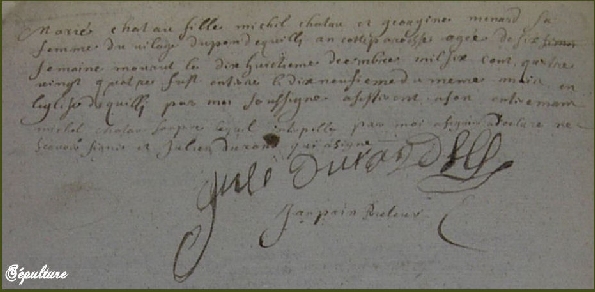 Marie chatau fille michel chatau et georgine menard sa
femme du vilage du grand equilli an cette paroisse agee de six
semaine mourut le dix huictieme decembre mil six cent quatre
vingt quatre fust enterre le dix neufiesme du meme mois en
leglise dequilli par moi soussigne assistant a son entiremant
michel chatau son pere lequel interpelle par moi a signe declare ne
scavoir signer et Julien durand qui a signe
Jul durand
Recteur
Sépulture